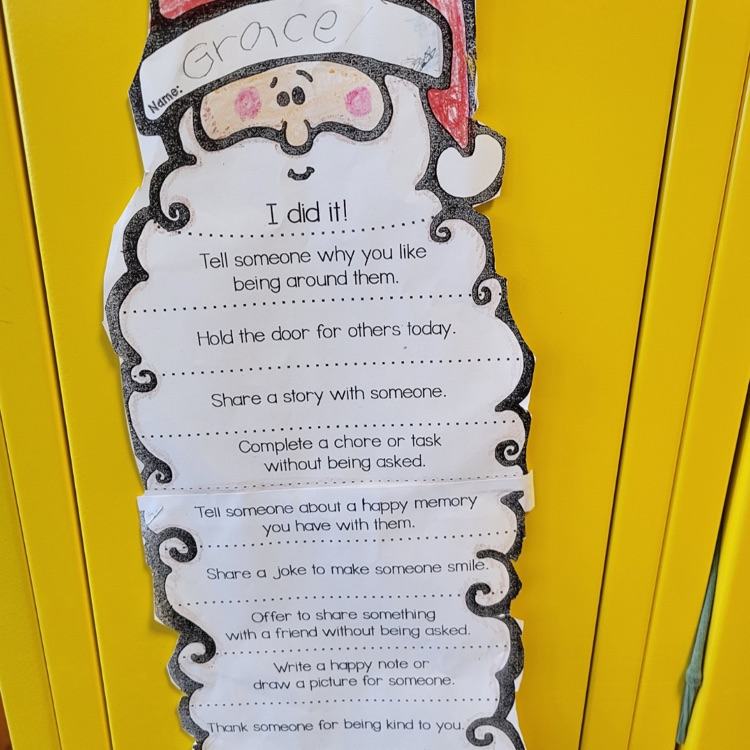 Grace
Name:
I did it!
Tell someone why you like
being around them.
Hold the door for others today.
Share a story with someone.
Complete a chore or task
without being asked.
Tell someone about a happy memory
you have with them.
Share a joke to make someone smile.
Offer to share something
with a friend without being asked.
Write a happy note or
draw a picture for someone.
Thank someone for being kind to you.